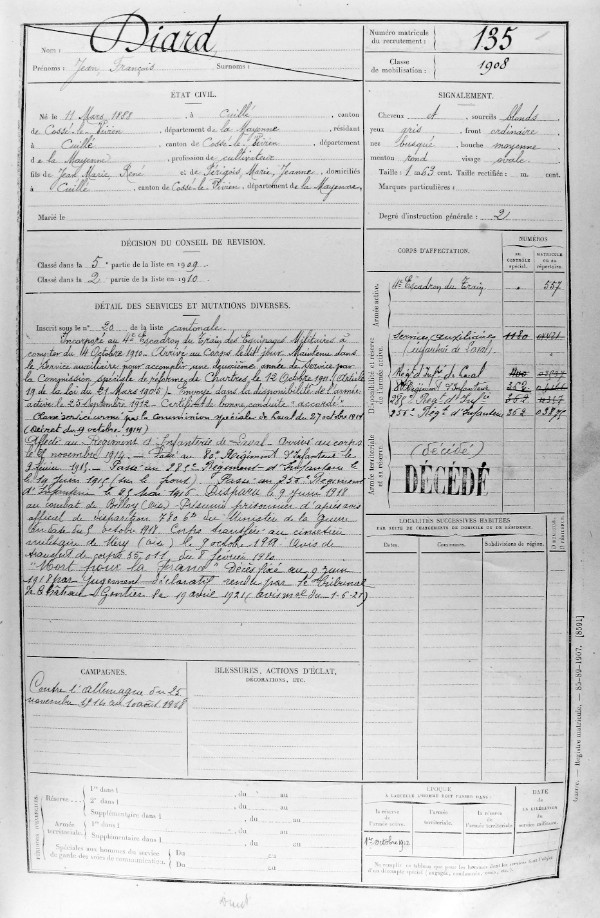 Nom : Diard,
Prénoms : Jean François Surnoms :
Numéro matricule du recrutement : 135
Classe de mobilisation : 1908
ÉTAT CIVIL.
Né le 11 Mars 1888 , à Cuillé , canton
de Cossé-le-Vivien , département de la Mayenne , résidant
à Cuillé , canton de Cossé-le-Vivien , département
de la Mayenne , profession de cultivateur
fils de Jean Marie, René et de Périgois, Marie, Jeanne , domiciliés
à Cuillé , canton de Cossé-le-Vivien , département de la Mayenne.
Marié le
SIGNALEMENT.
Cheveux , sourcils blonds
yeux gris , front ordinaire
nez busqué , bouche moyenne
menton rond visage ovale.
Taille : 1 m 63 cent. Taille rectifiée : m. cent.
Marques particulières :
Degré d'instruction générale : 2
DÉCISION DU CONSEIL DE REVISION.
Classé dans la 5e partie de la liste en 1909
Classé dans la 2 partie de la liste en 1910
DÉTAIL DES SERVICES ET MUTATIONS DIVERSES.
Inscrit sous le n° 20 de la liste cantonale.
Incorporé au 4e Escadron du Train des Équipages Militaires à
compter du 4 Octobre 1910. Arrivé au Corps ledit jour. Maintenu dans
le Service auxiliaire pour accomplir une deuxième année de service par
la Commission spéciale de réforme de Chartres, le 12 Octobre 1911 (Article
19 de la loi du 21 Mars 1905). Envoyé dans la disponibilité de l'armée
active le 25 septembre 1912. Certificat de bonne conduite "accordé"
Classé service armé par la commission spéciale de Laval du 27 octobre 1914
(Décret du 9 octobre 1914)
Affecté au Régiment d'Infanterie de Laval. Arrivé au corps
le novembre 1914. Passé au 80e Régiment d'Infanterie le
9 juin 1915. Passé au 285e Régiment d'Infanterie le
le 19 juin 1915 (sur le front) Passé au 255e Régiment
d'Infanterie le 25 1916 Disparu le 9 juin 1918
au combat de (Oise) Présumé prisonnier d'après avis
officiel de disparition du Ministère de la Guerre
en date du 5 octobre 1918. Corps transféré au cimetière
militaire de (Oise) le 9 octobre 1919. Avis de
transfert de corps 55.011, du 8 février 1920.
"Mort pour la france" Décès fixé au 9 juin
1918 par Jugement déclaratif rendu par le Tribunal
de Château Gontier le 19 avril 1921 (avis du 1-6-21)
CORPS D'AFFECTATION.
NUMÉROS
au contrôle spécial.
matricule ou au répertoire.
Armée active.
4e Escadron du Train 557
Disponibilité et réserve de l'armée active.
Services auxiliaires 1180
(infanterie de Laval)
Régt d'Infie de Laval
Régiment d'Infanterie 252
285e Régt d'Infie
255e Régt d'Infanterie 252
Armée territoriale et sa réserve.
(décédé)
DÉCÉDÉ
LOCALITÉS SUCCESSIVES HABITÉES
PAR SUITE DE CHANGEMENTS DE DOMICILE OU DE RÉSIDENCE.
Dates. Communes. Subdivisions de région.
CAMPAGNES.
Contre l'allemagne du 25
novembre 1914 au 10 août 1918
BLESSURES, ACTIONS D'ÉCLAT,
DÉCORATIONS, ETC.
PÉRIODES D'EXERCICES.
Réserve
1re dans l , du au
2e dans l , du au
Supplémentaire dans l , du au
Armée territoriale.
1re dans l , du au
Supplémentaire dans l , du au
Spéciales aux hommes du service de garde des voies de communication.
Du au
Du au
ÉPOQUE
À LAQUELLE L'HOMME DOIT PASSER DANS :
la réserve de l'armée active.
l'armée territoriale.
la réserve de l'armée territoriale.
DATE
DE LA LIBÉRATION du service militaire.
1er octobre 1912
Guerre. — Registre matricule. — 85-89-1907. [8591]